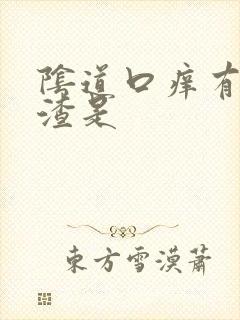 陰道口痒有
渣是
東方雪漠蕭